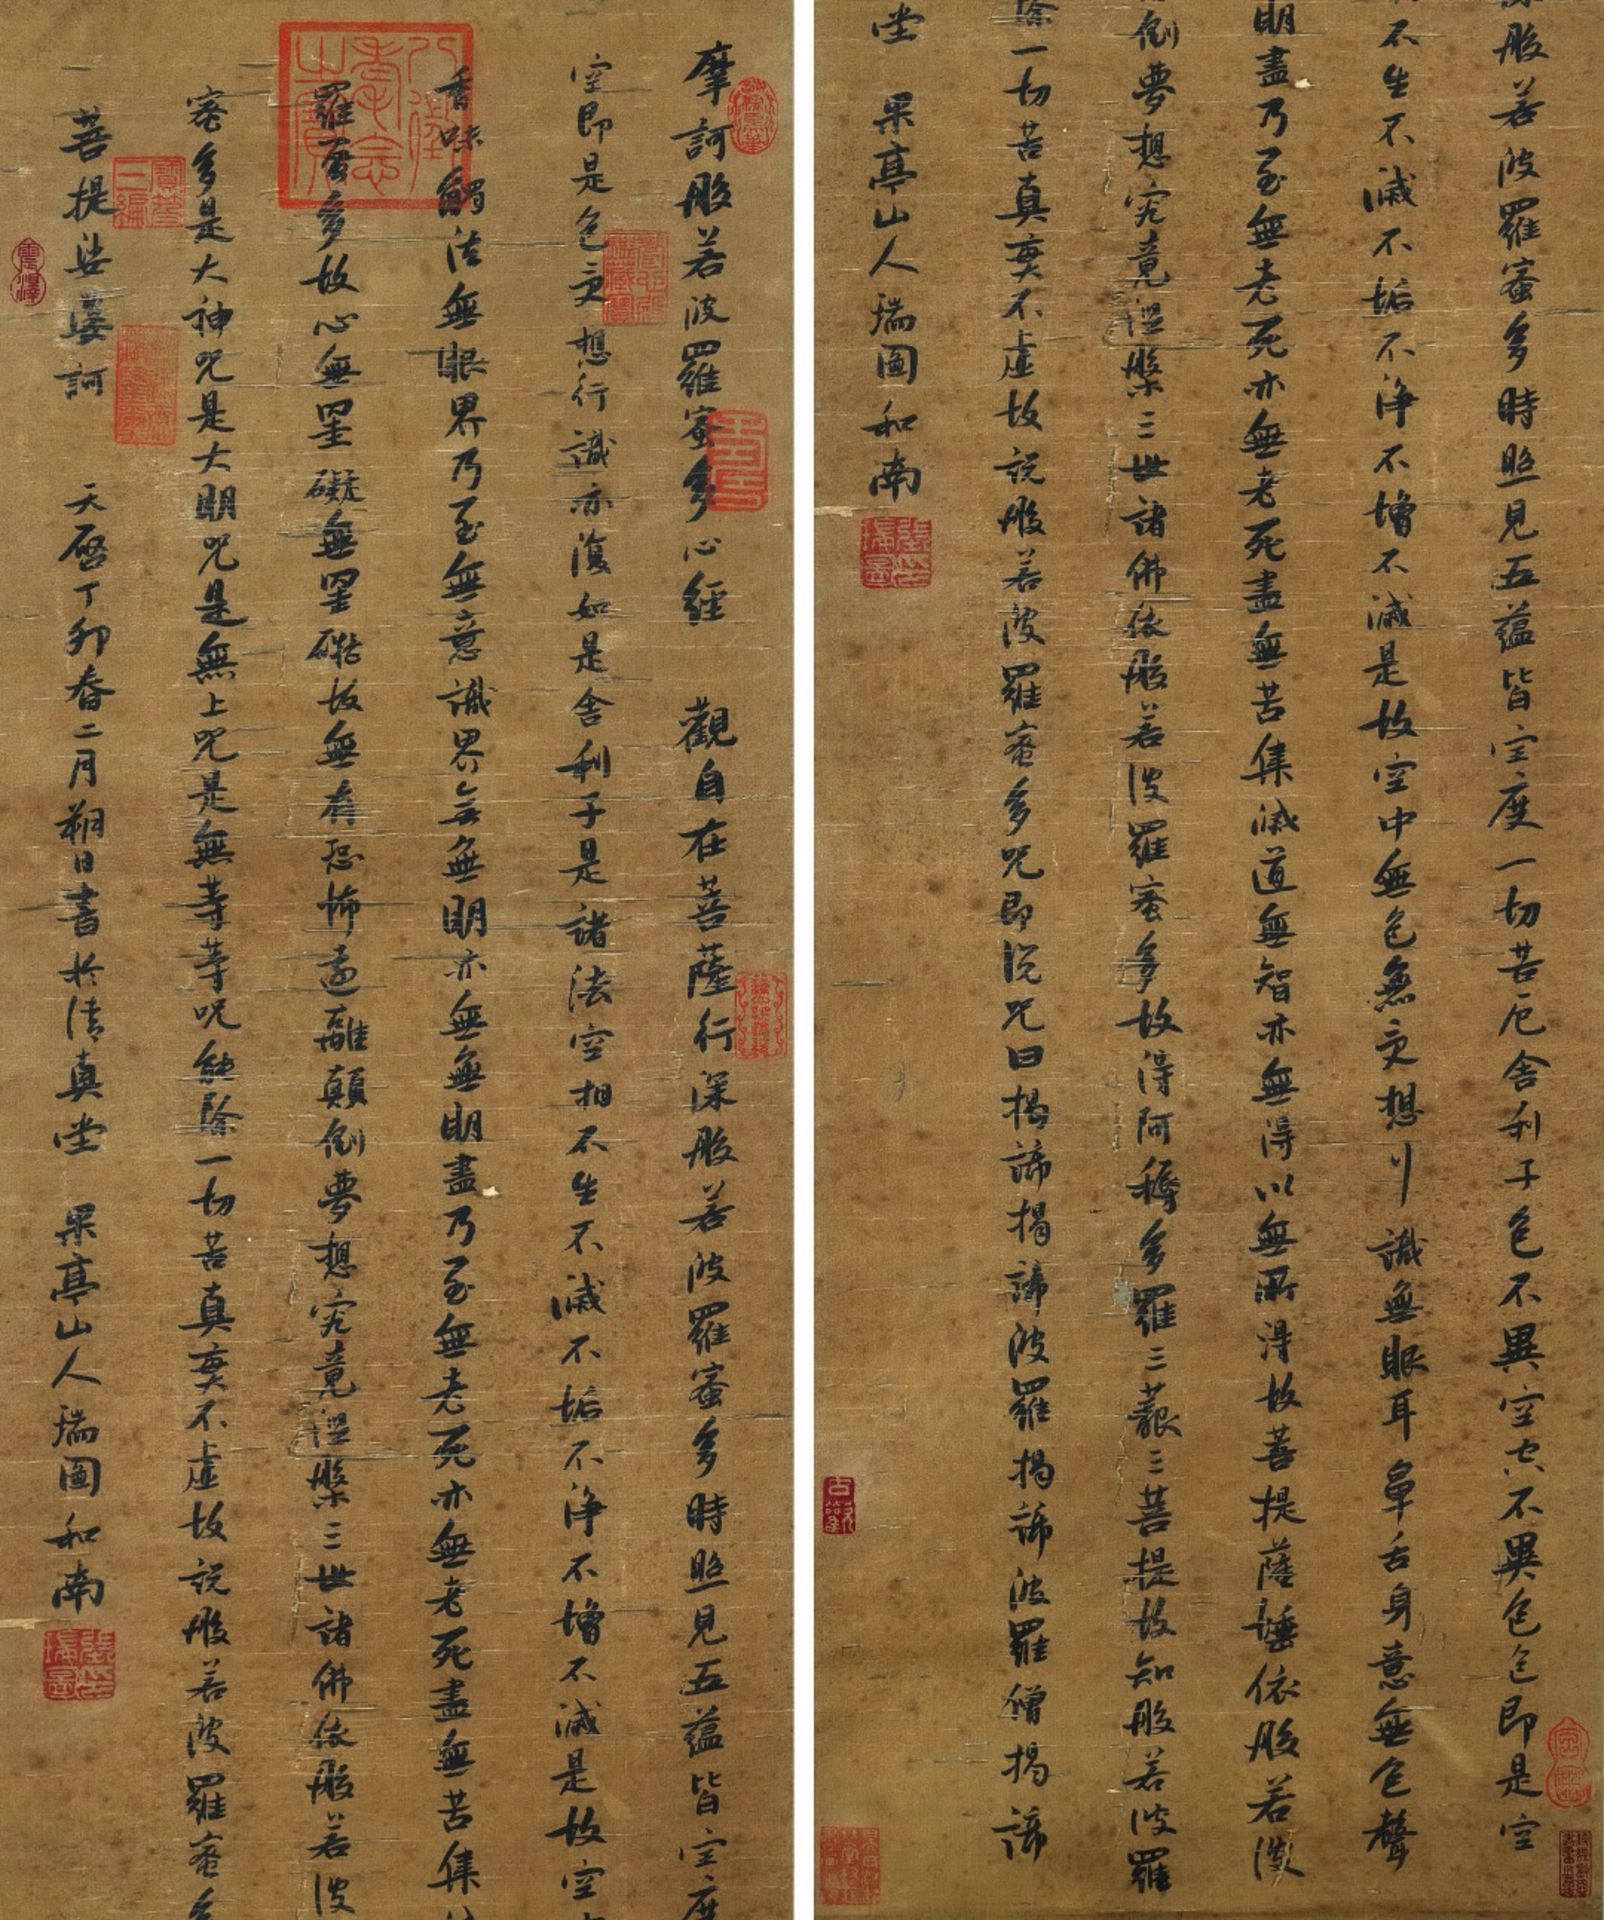 摩訶般若波羅蜜多心經 觀自在菩薩行深般若波羅蜜多時照見五蘊皆空度
空即是色受想行識亦復如是舍利子是諸法空相不生不滅不垢不淨不增不減是故空
香味觸法無眼界乃至無意識界無無明亦無無明盡乃至無老死亦無老死盡無苦集
羅蜜多故心無罣礙無罣礙故無有恐怖遠離顛倒夢想究竟涅槃三世諸佛依般若波
蜜多是大神咒是大明咒是無上咒是無等等咒能除一切苦真實不虛故說般若波羅蜜多
菩提娑婆訶 天啓丁卯春二月朔日書於清真堂 果亭山人瑞圖和南
八徵耄念之寶
寶笈三編
張瑞圖印
深般若波羅蜜多時照見五蘊皆空度一切苦厄舍利子色不異空空不異色色即是空
不生不滅不垢不淨不增不減是故空中無色無受想行識無眼耳鼻舌身意無色聲
明盡乃至無老死亦無老死盡無苦集滅道無智亦無得以無所得故菩提薩埵依般若波
倒夢想究竟涅槃三世諸佛依般若波羅蜜多故得阿耨多羅三藐三菩提故知般若波羅
除一切苦真實不虛故說般若波羅蜜多咒即說咒曰揭諦揭諦波羅揭諦波羅僧揭諦
堂 果亭山人瑞圖和南
張瑞圖印